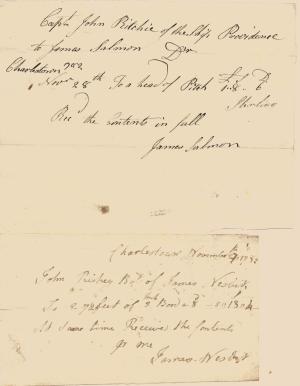 Captn John Ritchie of the Ship Providence
to James Salmon Dr
Charlestown
Novr 28th To a head of £ S D
Sterling
Recd the contents in full
James Salmon
Charlestown November
John Bot of James Nesbit
To 2 feet of Inch Board
At same time Received the Contents
pr me
James Nesbit